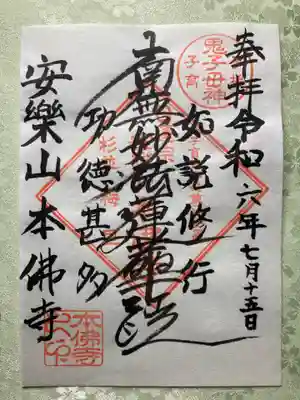 奉拝 令和六年七月十五日
如説修行
南無妙法蓮華経
功徳甚多
安樂山本佛寺
鬼子母神
子育
本佛寺